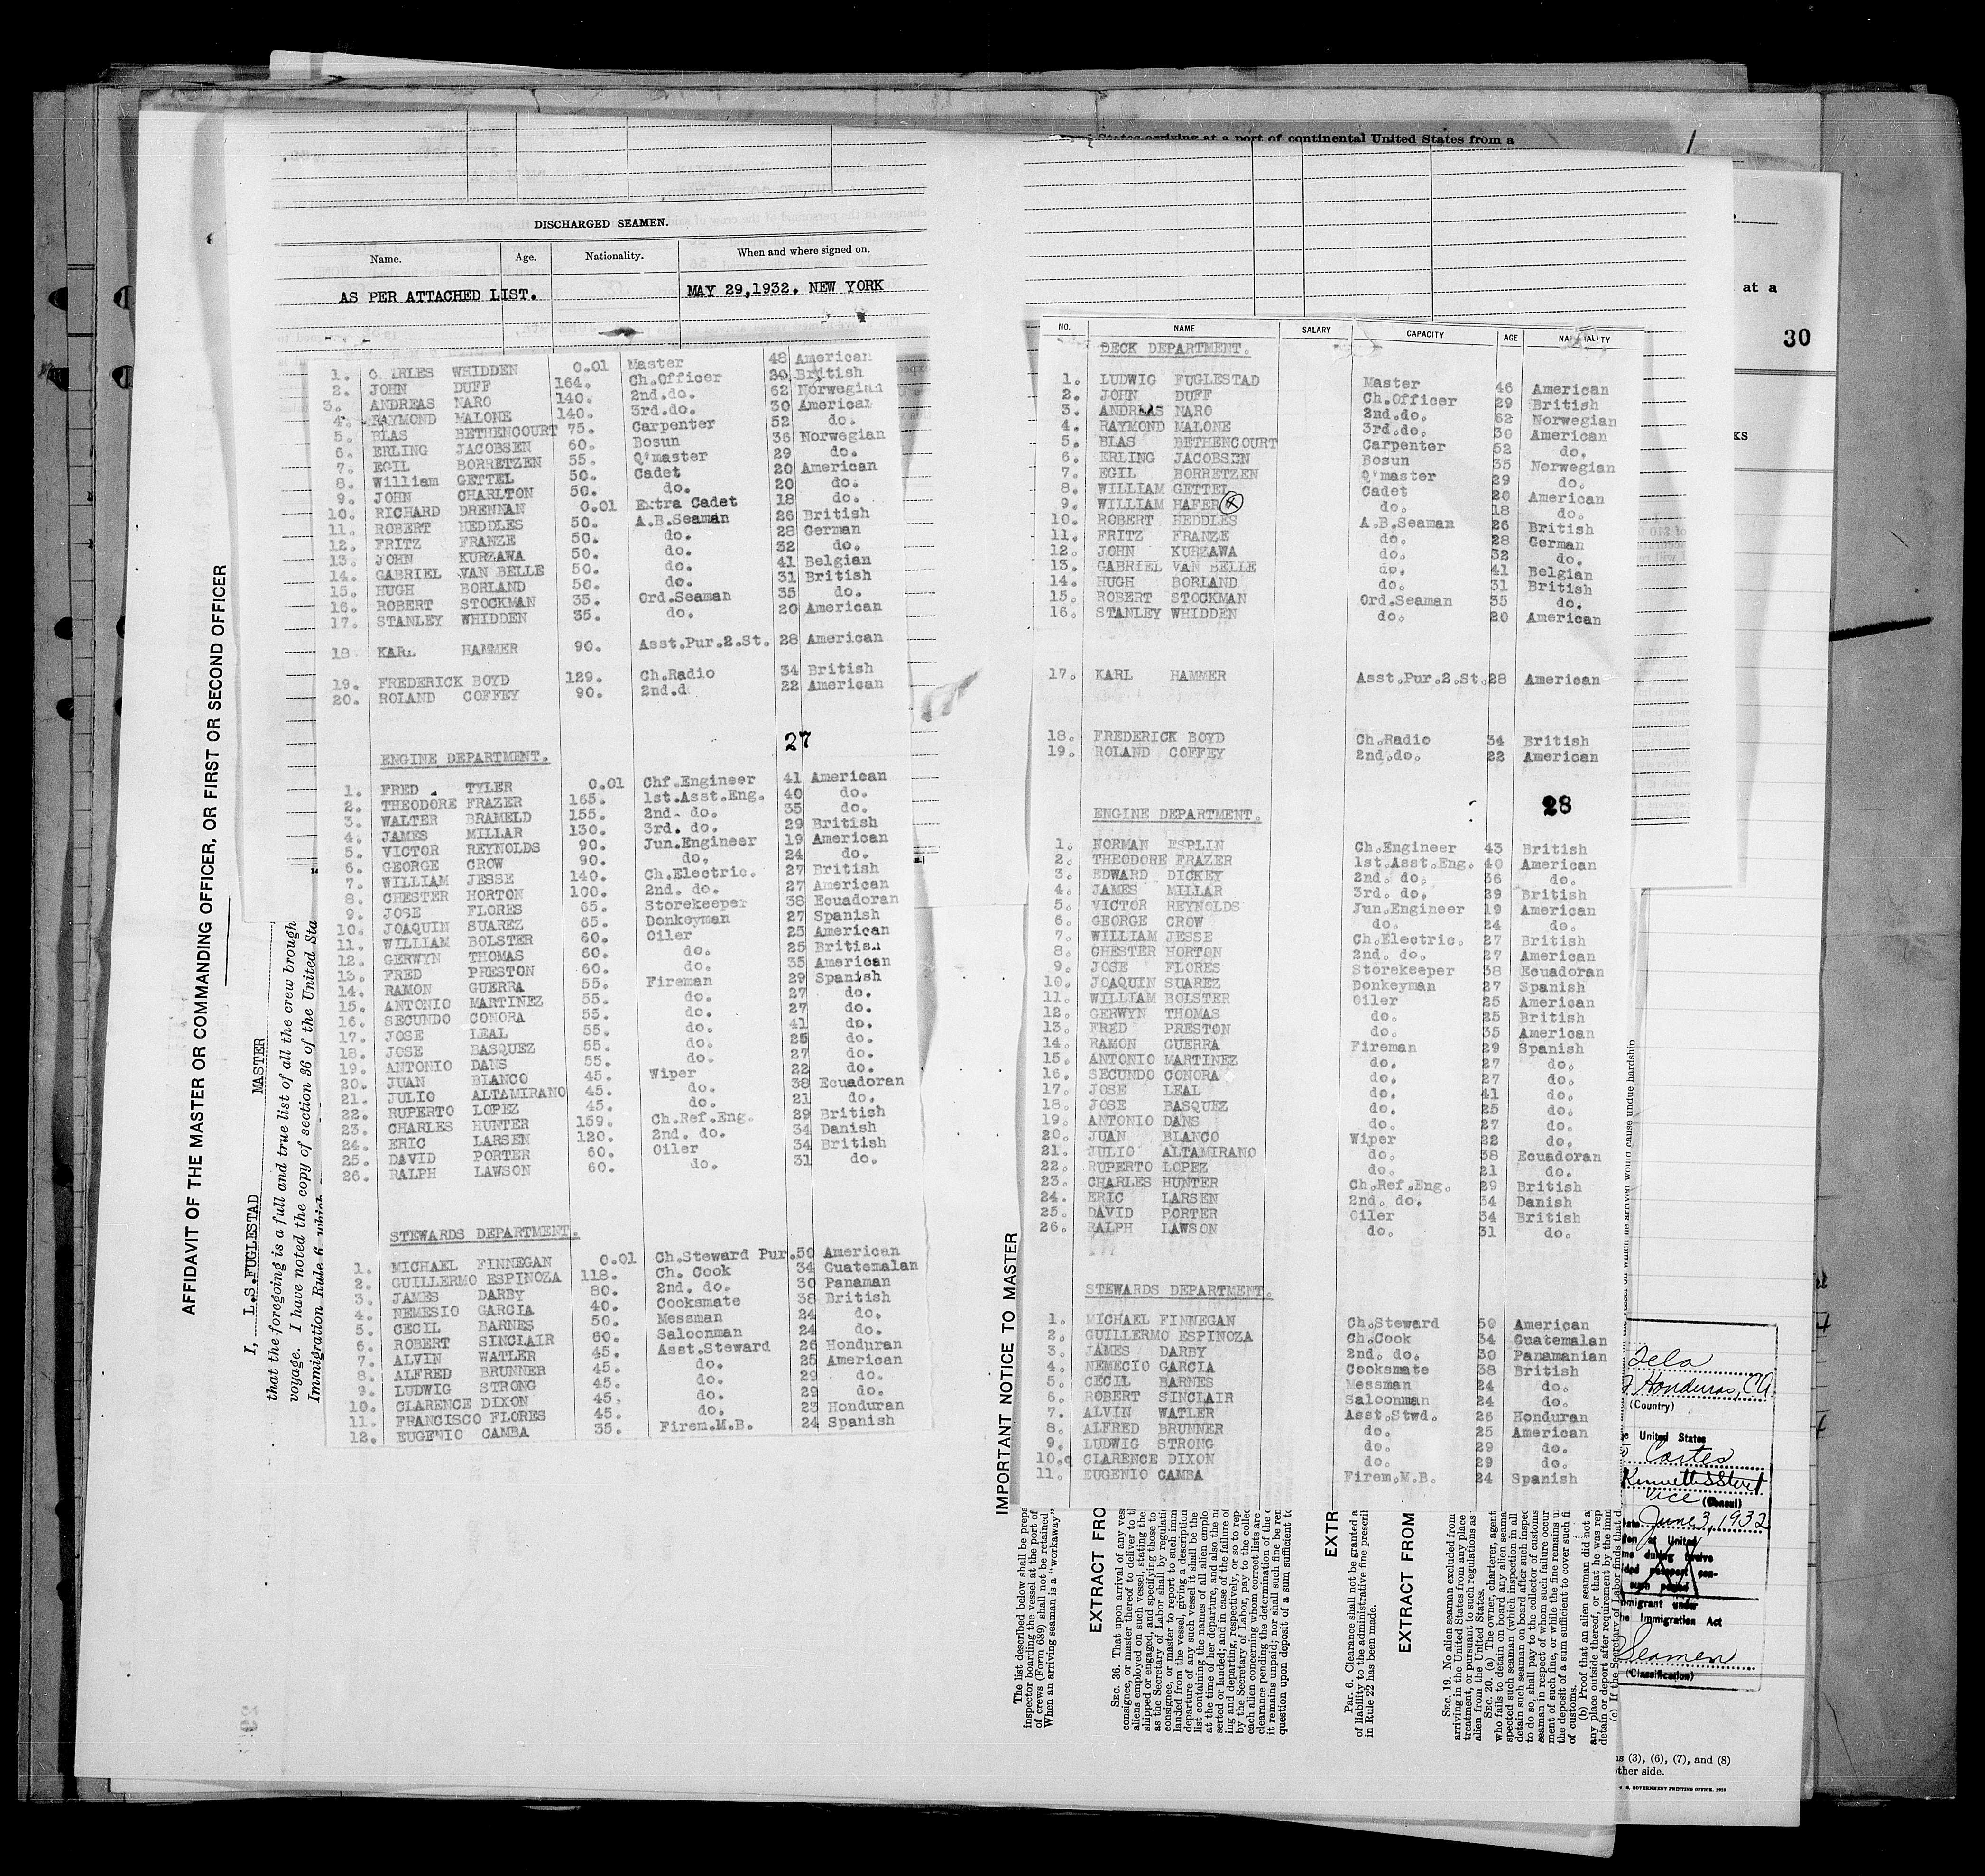 States arriving at a port of continental United States from a
DISCHARGED SEAMEN.
Name. Age. Nationality. When and where signed on.
AS PER ATTACHED LIST. MAY 29,1932. NEW YORK
1. WHIDDEN 0.01 Master 48 American
2. JOHN DUFF 164. Ch.Officer British
3. ANDREAS NARO 140. 2nd.do. 62 Norwegian
4. RAYMOND MALONE 140. 3rd.do. 30 American
5. BLAS BETHENCOURT 75. Carpenter 52 do.
6. ERLING JACOBSEN 60. Bosun 36 Norwegian
7. EGIL BORRETZEN 55. Q'master 29 do.
8. William GETTEL 50. Cadet 20 American
9. JOHN CHARLTON 50. do. 20 do.
10. RICHARD DRENNAN 0.01 Extra Cadet 18 do.
11. ROBERT HEDDLES 50. A.B.Seaman 26 British
12. FRITZ FRANZE 50. do. 28 German
13. JOHN KURZAWA 50. do. 32 do.
14. GABRIEL VAN BELLE 50. do. 41 Belgian
15. HUGH BORLAND 50. do. 31 British
16. ROBERT STOCKMAN 35. Ord.Seaman 35 do.
17. STANLEY WHIDDEN 35. do. 20 American
18 KARL HAMMER 90. Asst.Pur.2.St. 28 American
19. FREDERICK BOYD 129. Ch.Radio 34 British
20. ROLAND COFFEY 90. 2nd.d 22 American
27
ENGINE DEPARTMENT.
1. FRED . TYLER 0.01 Chf.Engineer 41 American
2. THEODORE FRAZER 165. 1st.Asst.Eng. 40 do.
3. WALTER BRAMELD 155. 2nd. do. 35 do.
4. JAMES MILLAR 130. 3rd. do. 29 British
5. VICTOR REYNOLDS 90. Jun.Engineer 19 American
6. GEORGE CROW 90. do. 24 do.
7. WILLIAM JESSE 140. Ch.Electric. 27 British
8. CHESTER HORTON 100. 2nd. do. 27 American
9. JOSE FLORES 65. Storekeeper 38 Ecuadoran
10. JOAQUIN SUAREZ 65. Donkeyman 27 Spanish
11. WILLIAM BOLSTER 60. Oiler 25 American
12. GERWYN THOMAS 60. do. 25 British
13. FRED PRESTON 60. do. 35 American
14. RAMON GUERRA 55. Fireman 29 Spanish
15. ANTONIO MARTINEZ 55. do. 27 do.
16. SECUNDO CONORA 55. do. 27 do.
17. JOSE LEAL 55. do. 41 do.
18. JOSE BASQUEZ 55. do. 25 do.
19. ANTONIO DANS 55. do. 27 do.
20. JUAN BLANCO 45. Wiper 22 do.
21. JULIO ALTAMIRANO 45. do. 38 Ecuadoran
22. RUPERTO LOPEZ 45. do. 21 do.
23. CHARLES HUNTER 159. Ch.Ref.Eng. 29 British
24. ERIC LARSEN 120. 2nd. do. 34 Danish
25. DAVID PORTER 60. Oiler 34 British
26. RALPH LAWSON 60. do. 31 do.
STEWARDS DEPARTMENT.
1. MICHAEL FINNEGAN 0.01 Ch.Steward Pur.50 American
2. GUILLERMO ESPINOZA 118. Ch. Cook 34 Guatemalan
3. JAMES DARBY 80. 2nd. do. 30 Panaman
4. NEMESIO GARCIA 40. Cooksmate 38 British
5. CECIL BARNES 50. Messman 24 do.
6. ROBERT SINCLAIR 60. Saloonman 24 do.
7. ALVIN WATLER 45. Asst.Steward 26 Honduran
8. ALFRED BRUNNER 45. do. 25 American
9. LUDWIG STRONG 45. do. 29 do.
10. CLARENCE DIXON 45. do. 29 do.
11. FRANCISCO FLORES 45. do. 23 Honduran
12. EUGENIO CAMBA 35. Firem.M.B. 24 Spanish
AFFIDAVIT OF THE MASTER OR COMMANDING OFFICER, OR FIRST OR SECOND OFFICER
I, L.S.FUGLESTAD MASTER
that the foregoing is a full and true list of all the crew brough
voyage. I have noted the copy of section 36 of the United Sta
Immigration Rule 6
NO. NAME SALARY CAPACITY AGE
DECK DEPARTMENT.
1. LUDWIG FUGLESTAD Master 46 American
2. JOHN DUFF Ch.Officer 29 British
3. ANDREAS NARO 2nd.do. 62 Norwegian
4. RAYMOND MALONE 3rd.do. 30 American
5. BLAS BETHENCOURT Carpenter 52 do.
6. ERLING JACOBSEN Bosun 35 Norwegian
7. EGIL BORRETZEN Q'master 29 do.
8. WILLIAM GETTEL Cadet 20 American
9. WILLIAM HAFER x do. 18 do.
10. ROBERT HEDDLES A.B.Seaman 26 British
11. FRITZ FRANZE do. 28 German
12. JOHN KURZAWA do. 32 do.
13. GABRIEL VAN BELLE do. 41 Belgian
14. HUGH BORLAND do. 31 British
15. ROBERT STOCKMAN Ord.Seaman 35 do.
16. STANLEY WHIDDEN do. 20 American
17. KARL HAMMER Asst.Pur.2.St.28 American
18. FREDERICK BOYD Ch.Radio 34 British
19. ROLAND COFFEY 2nd.do. 22 American
28
ENGINE DEPARTMENT.
1. NORMAN ESPLIN Ch.Engineer 43 British
2. THEODORE FRAZER 1st.Asst.Eng. 40 American
3. EDWARD DICKEY 2nd. do. 36 do.
4. JAMES MILLAR 3rd. do. 29 British
5. VICTOR REYNOLDS Jun.Engineer 19 American
6. GEORGE CROW do. 24 do.
7. WILLIAM JESSE Ch.Electric. 27 British
8. CHESTER HORTON 2nd. do. 27 American
9. JOSE FLORES Storekeeper 38 Ecuadoran
10. JOAQUIN SUAREZ Donkeyman 27 Spanish
11. WILLIAM BOLSTER Oiler 25 American
12. GERWYN THOMAS do. 25 British
13. FRED PRESTON do. 35 American
14. RAMON GUERRA Fireman 29 Spanish
15. ANTONIO MARTINEZ do. 27 do.
16. SECUNDO CONORA do. 27 do.
17. JOSE LEAL do. 41 do.
18. JOSE BASQUEZ do. 25 do.
19. ANTONIO DANS do. 27 do.
20. JUAN BLANCO Wiper 22 do.
21. JULIO ALTAMIRANO do. 38 Ecuadoran
22. RUPERTO LOPEZ do. 21 do.
23. CHARLES HUNTER Ch.Ref.Eng. 29 British
24. ERIC LARSEN 2nd. do. 34 Danish
25. DAVID PORTER Oiler 34 British
26. RALPH LAWSON do. 31 do.
STEWARDS DEPARTMENT.
1. MICHAEL FINNEGAN Ch.Steward 50 American
2. GUILLERMO ESPINOZA Ch.Cook 34 Guatemalan
3. JAMES DARBY 2nd. do. 30 Panamanian
4. NEMECIO GARCIA Cooksmate 38 British
5. CECIL BARNES Messman 24 do.
6. ROBERT SINCLAIR Saloonman 24 do.
7. ALVIN WATLER Asst.Stwd. 26 Honduran
8. ALFRED BRUNNER do. 25 American
9. LUDWIG STRONG do. 29 do.
10. CLARENCE DIXON do. 29 do.
11. EUGENIO CAMBA Firem.M.B. 24 Spanish
IMPORTANT NOTICE TO MASTER
The list described below shall be prepa
inspector boarding the vessel at the port of
of crews (Form 689) shall not be retained
When an arriving seaman is a "workaway"
EXTRACT FRO
SEC. 36. That upon arrival of any ves
consignee, or master thereof to deliver to t
aliens employed on such vessel, stating the
shipped or engaged, and specifying those to
as the Secretary of Labor shall by regulati
consignee, or master to report to such imm
landed from the vessel, giving a description
departure of any such vessel it shall be the
list containing the names of all alien emplo
at the time of her departure, and also the n
serted or landed; and in case of the failure of
ing and departing, respectively, or so to rep
by the Secretary of Labor, pay to the collec
each alien concerning whom correct lists are
clearance pending the determination of the
it remains unpaid; nor shall such fine be rem
question upon deposit of a sum sufficient to
EXTR
Par. 6. Clearance shall not be granted a
of liability to the administrative fine prescri
in Rule 22 has been made.
EXTRACT FROM
SEC. 19. No alien seaman excluded from
arriving in the United States from any place
treatment, or pursuant to such regulations as
alien from the United States.
SEC. 20. (a) The owner, charterer, agent
who fails to detain on board any alien seama
spected such seaman (which inspection in all
detain such seaman on board after such inspec
to do so, shall pay to the collector of customs
seaman in respect of whom such failure occur
ment of such fine, or while the fine remains u
the deposit of a sum sufficient to cover such fi
of customs.
(b) Proof that an alien seaman did not a
any place outside thereof, or that he was rep
detain or deport after requirement by the imm
(c) If the Secretary of Labor finds that d
would cause undue hardship
at a
30
KS
Tela
Honduras, C.A.
(Country)
United States
Cortes
Vice (Consul)
June 3, 1932
at United
during twelve
such period
immigrant under
Immigration Act
Seamen
(Classification)
(3), (6), (7), and (8)
other side.
GOVERNMENT PRINTING OFFICE